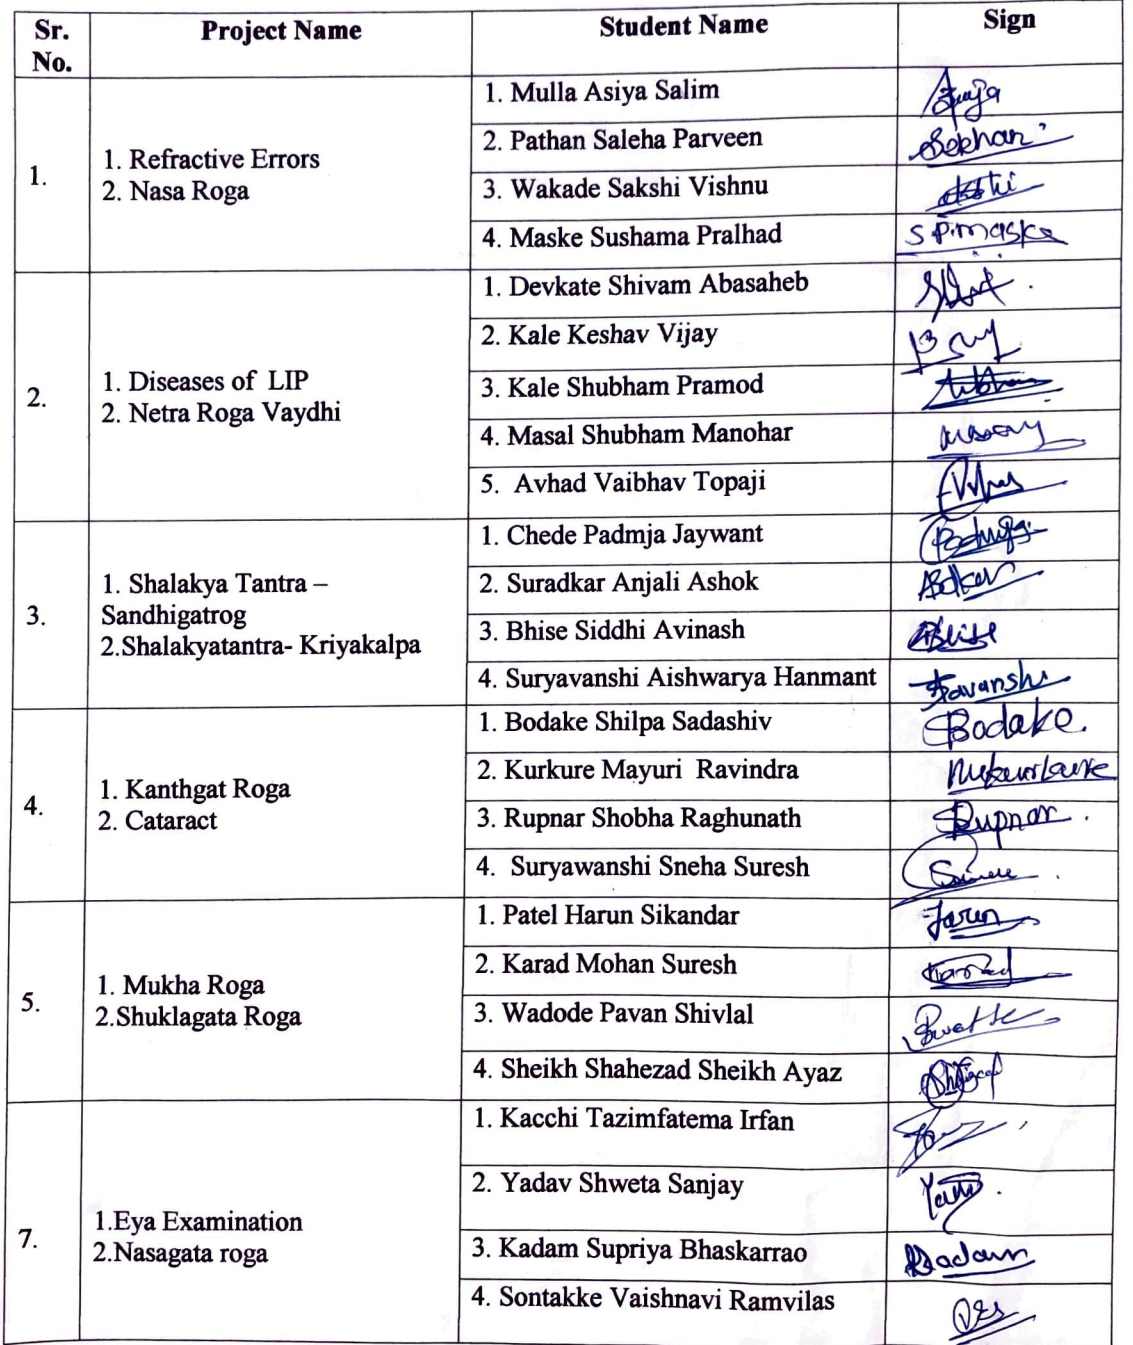 Sr. No. Project Name Student Name Sign
1. 1. Refractive Errors
2. Nasa Roga
1. Mulla Asiya Salim
2. Pathan Saleha Parveen
3. Wakade Sakshi Vishnu
4. Maske Sushama Pralhad S.P.maske
2. 1. Diseases of LIP
2. Netra Roga Vaydhi
1. Devkate Shivam Abasaheb
2. Kale Keshav Vijay
3. Kale Shubham Pramod
4. Masal Shubham Manohar
5. Avhad Vaibhav Topaji
3. 1. Shalakya Tantra –
Sandhigatrog
2.Shalakyatantra- Kriyakalpa
1. Chede Padmja Jaywant
2. Suradkar Anjali Ashok
3. Bhise Siddhi Avinash
4. Suryavanshi Aishwarya Hanmant
4. 1. Kanthgat Roga
2. Cataract
1. Bodake Shilpa Sadashiv Bodake.
2. Kurkure Mayuri Ravindra
3. Rupnar Shobha Raghunath Rupnar.
4. Suryawanshi Sneha Suresh
5. 1. Mukha Roga
2.Shuklagata Roga
1. Patel Harun Sikandar
2. Karad Mohan Suresh
3. Wadode Pavan Shivlal
4. Sheikh Shahezad Sheikh Ayaz
7. 1.Eya Examination
2.Nasagata roga
1. Kacchi Tazimfatema Irfan
2. Yadav Shweta Sanjay
3. Kadam Supriya Bhaskarrao
4. Sontakke Vaishnavi Ramvilas